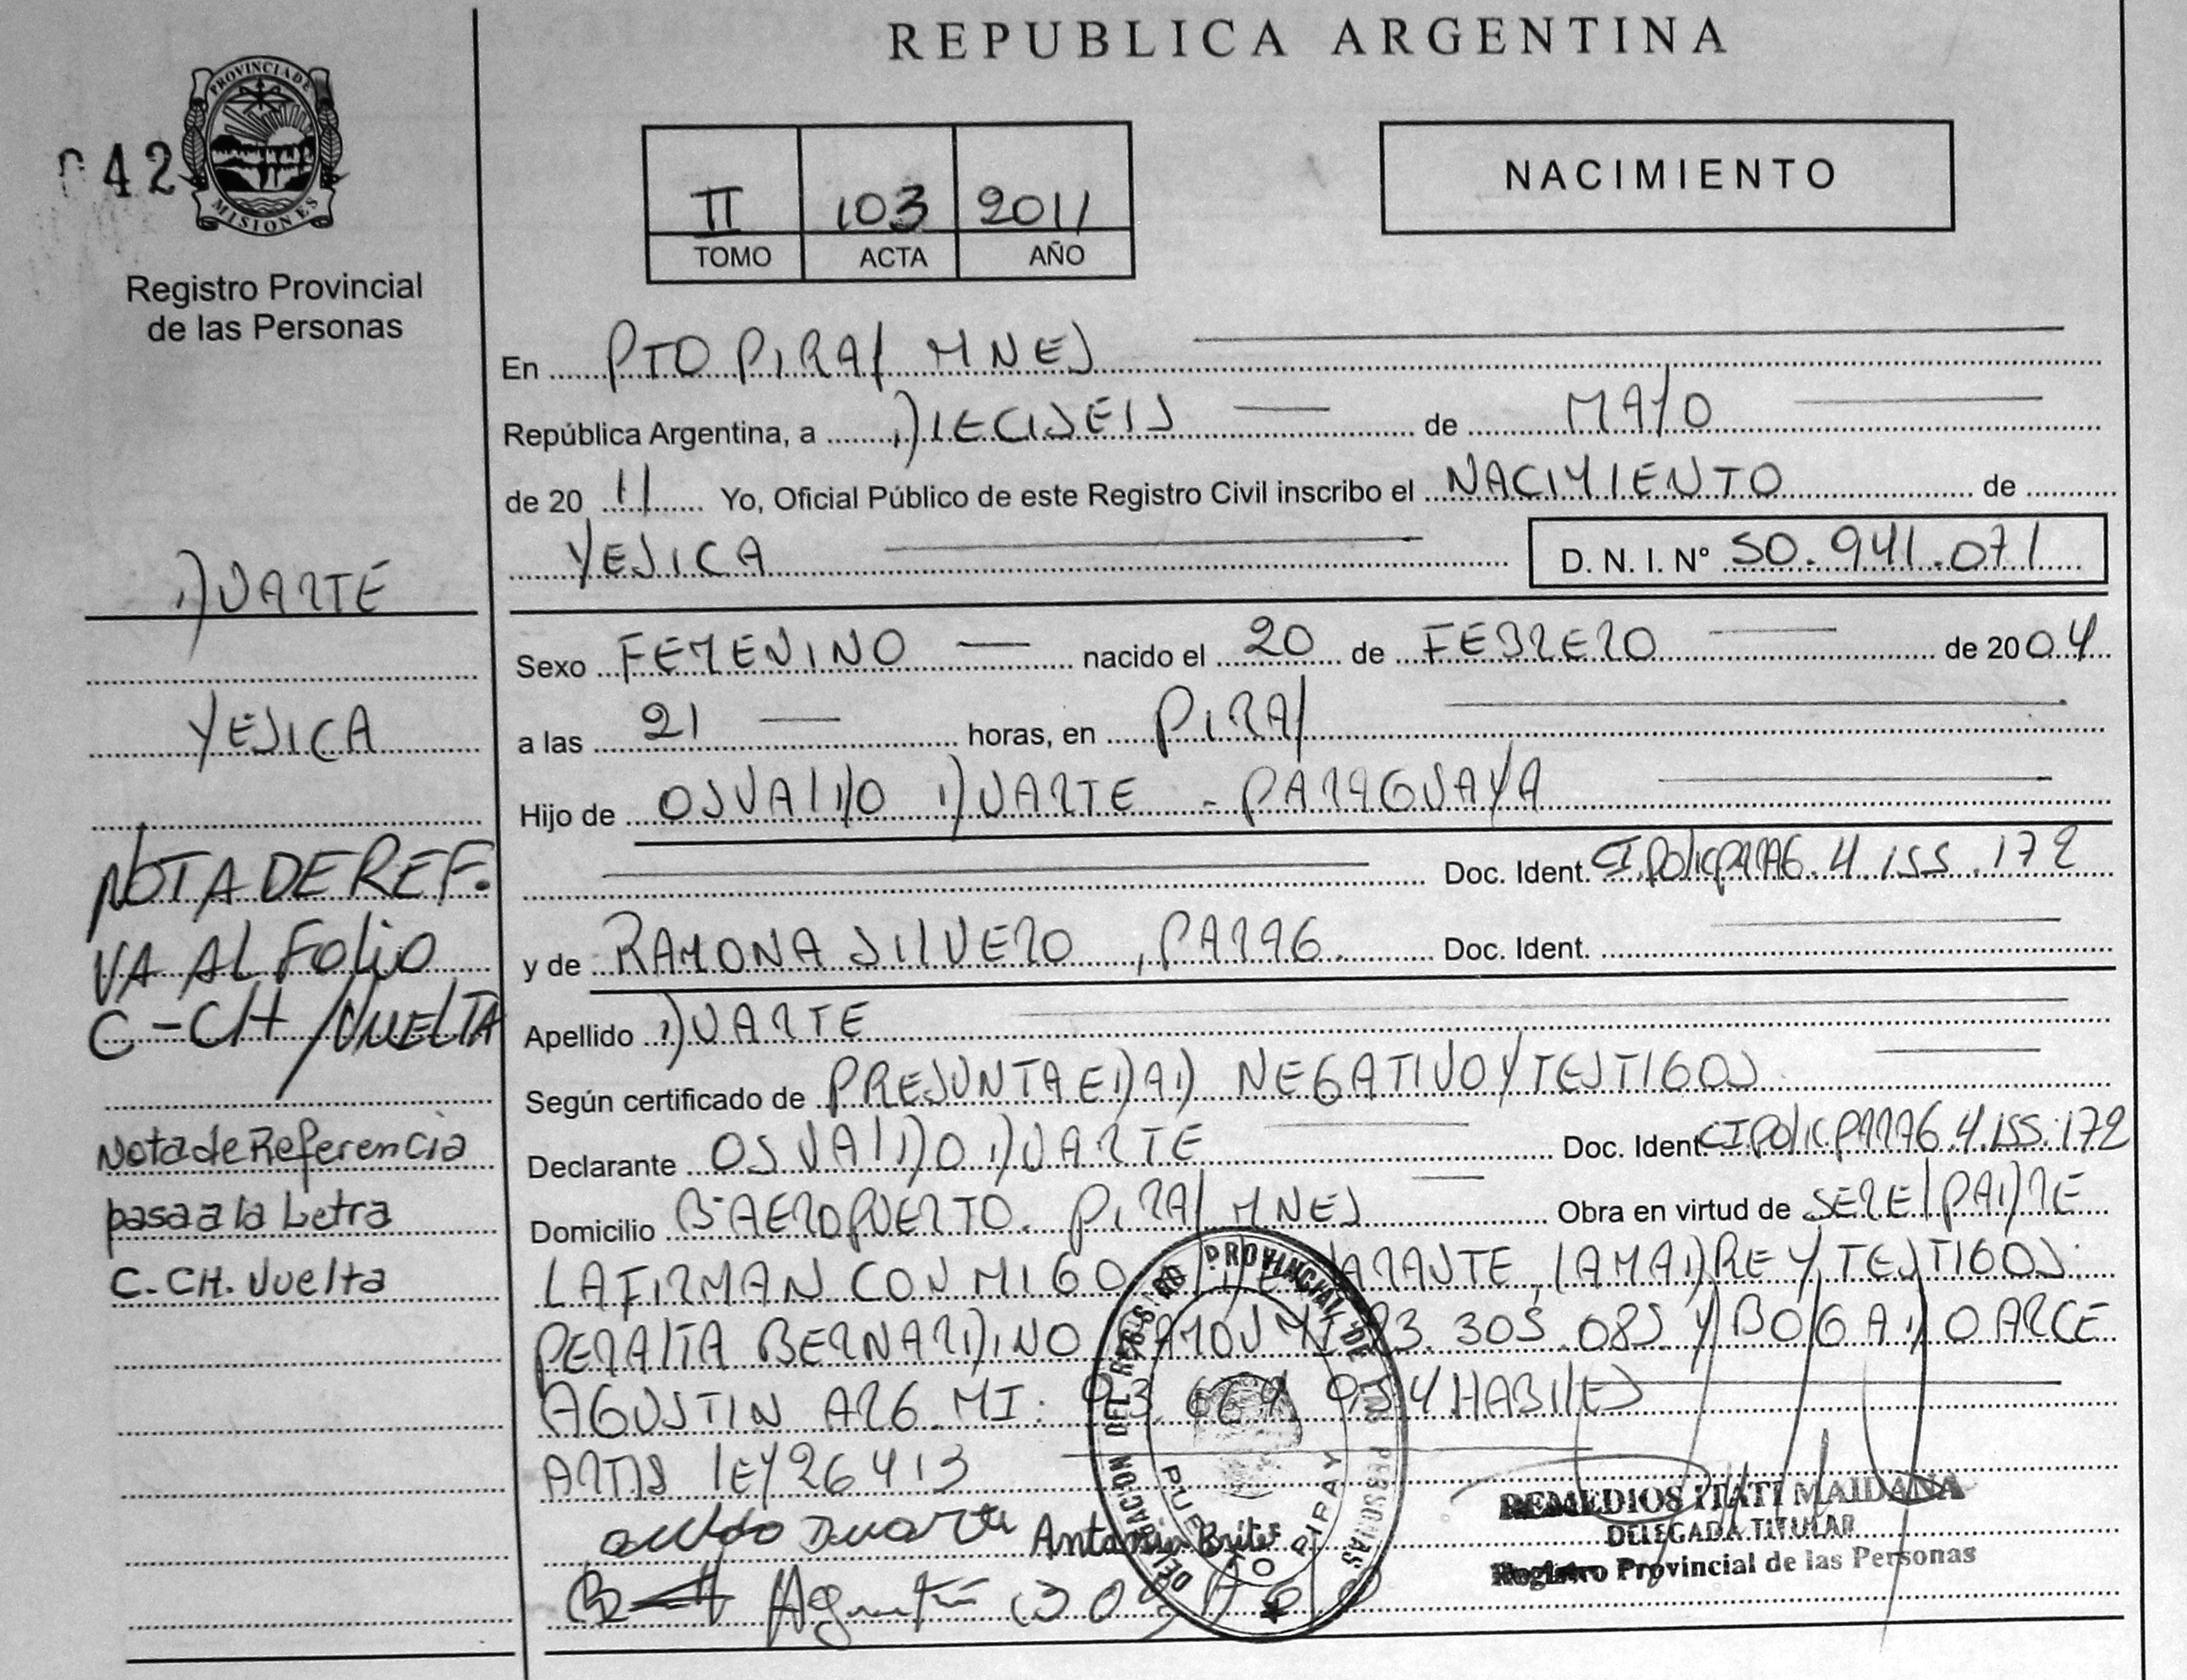 REPUBLICA ARGENTINA
042
PROVINCIA DE
MISIONES
Registro Provincial
de las Personas
II 103 2011
TOMO ACTA AÑO
NACIMIENTO
En PTO PIRAY MNES
República Argentina, a DIECISEIS de MAYO
de 20 11 Yo, Oficial Público de este Registro Civil inscribo el NACIMIENTO de
YESICA D. N. I. Nº 50.941.071
DUARTE
Sexo FEMENINO nacido el 20 de FEBRERO de 2004
YESICA
a las 21 horas, en PIRAY
Hijo de OSVALDO DUARTE - PARAGUAYA
NOTA DE REF.
Doc. Ident. CI.POLIC PARAG. 4.155.172
VA AL FOLIO
y de RAMONA SILVERO , PARAG. Doc. Ident.
C-CH /VUELTA
Apellido DUARTE
Según certificado de PRESUNTA EDAD NEGATIVO Y TESTIGOS
Nota de Referencia
Declarante OSVALDO DUARTE Doc. Ident. CI POLIC. PARAG 4.155.172
pasa a la Letra
Domicilio Bº AEROPUERTO. PIRAY MNES Obra en virtud de SER EL PADRE
C-CH. Vuelta
LA FIRMAN CONMIGO LA MADRE Y TESTIGOS:
PERALTA BERNARDINO RAMOS MI 305.085 Y BOGADO ARCE
AGUSTIN ARG MI: HABILES
LEY 26413
Duarte
Agustin
DELEGACION DEL REGISTRO PROVINCIAL DE LAS PERSONAS
PUERTO PIRAY
REMEDIOS ITATI MAIDANA
DELEGADA TITULAR
Registro Provincial de las Personas